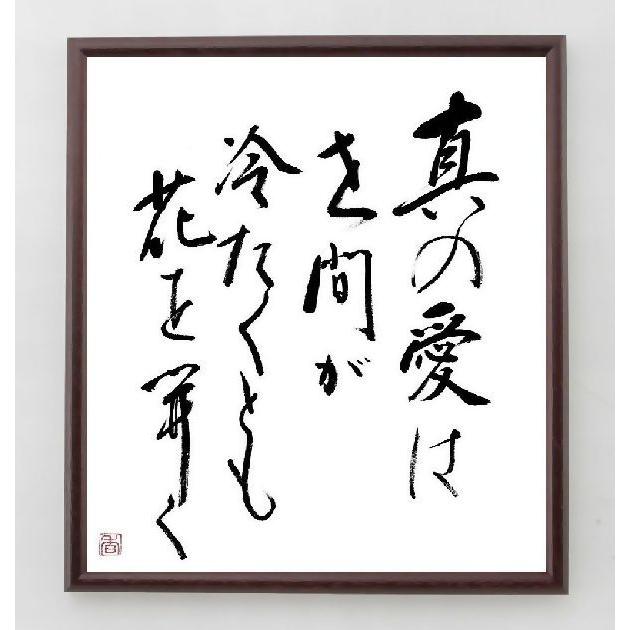 真の愛は
せ間が
冷たくとも
花を開く